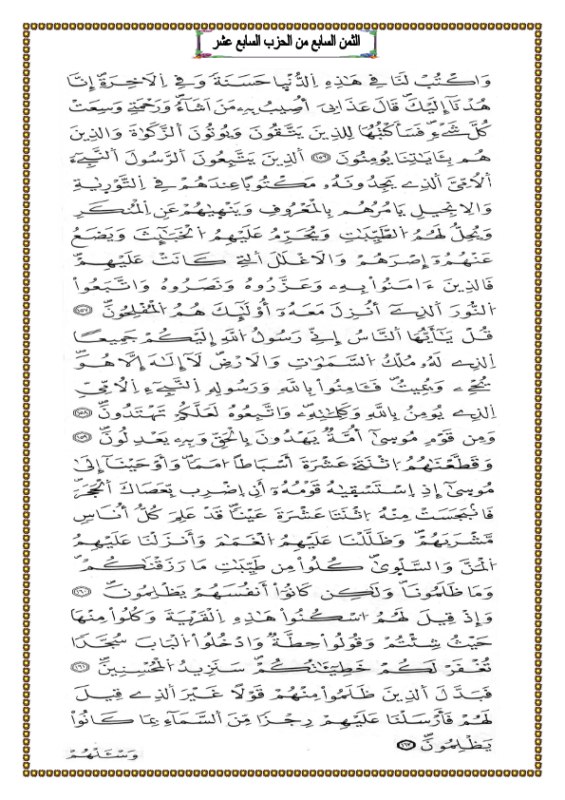 الثمن السابع من الحزب السابع عشر
وَاكْتُبْ لَنَا فِي هَٰذِهِ اِلدُّنْيَا حَسَنَةً وَفِي اِلَاخِرَةِ إِنَّا
هُدْنَآ إِلَيْكَ قَالَ عَذَابِيَ أُصِيبُ بِهِۦ مَنَ اَشَآءُ وَرَحْمَتِي وَسِعَتْ
كُلَّ شَےْءٖ فَسَأَكْتُبُهَا لِلذِينَ يَتَّقُونَ وَيُوتُونَ اَلزَّكَوٰةَ وَالذِينَ
هُم بِـَٔايَٰتِنَا يُومِنُونَ ١٥٦ اَلذِينَ يَتَّبِعُونَ اَلرَّسُولَ اَلنَّبِےٓءَ
اَلُامِّيَّ اَلذِے يَجِدُونَهُۥ مَكْتُوباً عِندَهُمْ فِي اِلتَّوْرٰيةِ
وَالِانجِيلِ يَامُرُهُم بِالْمَعْرُوفِ وَيَنْهٰيهُمْ عَنِ اِلْمُنكَرِ
وَيُحِلُّ لَهُمُ اُلطَّيِّبَٰتِ وَيُحَرِّمُ عَلَيْهِمُ اُلْخَبَٰٓئِثَ وَيَضَعُ
عَنْهُمُۥٓ إِصْرَهُمْ وَالَاغْلَٰلَ اَلتِے كَانَتْ عَلَيْهِمْ
فَالذِينَ ءَامَنُواْ بِهِۦ وَعَزَّرُوهُ وَنَصَرُوهُ وَاتَّبَعُواْ
اُلنُّورَ اَلذِےٓ أُنزِلَ مَعَهُۥٓ أُوْلَٰٓئِكَ هُمُ اُلْمُفْلِحُونَ ١٥٧
قُلْ يَٰٓأَيُّهَا اَلنَّاسُ إِنِّي رَسُولُ اُللَّهِ إِلَيْكُمْ جَمِيعاً
اِلذِے لَهُۥ مُلْكُ اُلسَّمَٰوَٰتِ وَالَارْضِ لَآ إِلَٰهَ إِلَّا هُوَ
يُحْيِۦ وَيُمِيتُ فَـَٔامِنُواْ بِاللَّهِ وَرَسُولِهِ اِلنَّبِےٓءِ اِلُامِّيِّ
اِلذِے يُومِنُ بِاللَّهِ وَكَلِمَٰتِهِۦ وَاتَّبِعُوهُ لَعَلَّكُمْ تَهْتَدُونَ ١٥٨
وَمِن قَوْمِ مُوسىٰٓ أُمَّةٌ يَهْدُونَ بِالْحَقِّ وَبِهِۦ يَعْدِلُونَ ١٥٩
وَقَطَّعْنَٰهُمُ اُثْنَتَےْ عَشْرَةَ أَسْبَاطاً اُمَماً وَأَوْحَيْنَآ إِلَىٰ
مُوسىٰٓ إِذِ اِسْتَسْقٰيهُ قَوْمُهُۥٓ أَنِ اِضْرِب بِّعَصَاكَ اَلْحَجَرَ
فَانۢبَجَسَتْ مِنْهُ اُثْنَتَا عَشْرَةَ عَيْناً قَدْ عَلِمَ كُلُّ أُنَاسٖ
مَّشْرَبَهُمْ وَظَلَّلْنَا عَلَيْهِمُ اُلْغَمَٰمَ وَأَنزَلْنَا عَلَيْهِمُ
اُلْمَنَّ وَالسَّلْوىٰ كُلُواْ مِن طَيِّبَٰتِ مَا رَزَقْنَٰكُمْ
وَمَا ظَلَمُونَا وَلَٰكِن كَانُوٓاْ أَنفُسَهُمْ يَظْلِمُونَ ١٦٠
وَإِذْ قِيلَ لَهُمُ اُسْكُنُواْ هَٰذِهِ اِلْقَرْيَةَ وَكُلُواْ مِنْهَا
حَيْثُ شِئْتُمْ وَقُولُواْ حِطَّةٌ وَادْخُلُواْ اُلْبَابَ سُجَّداً
تُغْفَرْ لَكُمْ خَطِيٓـَٰٔتُكُمْ سَنَزِيدُ اُلْمُحْسِنِينَ ١٦١
فَبَدَّلَ اَلذِينَ ظَلَمُواْ مِنْهُمْ قَوْلاً غَيْرَ اَلذِے قِيلَ
لَهُمْ فَأَرْسَلْنَا عَلَيْهِمْ رِجْزاً مِّنَ اَلسَّمَآءِ بِمَا كَانُواْ
يَظْلِمُونَ ١٦٢
وَسْـَٔلْهُمْ